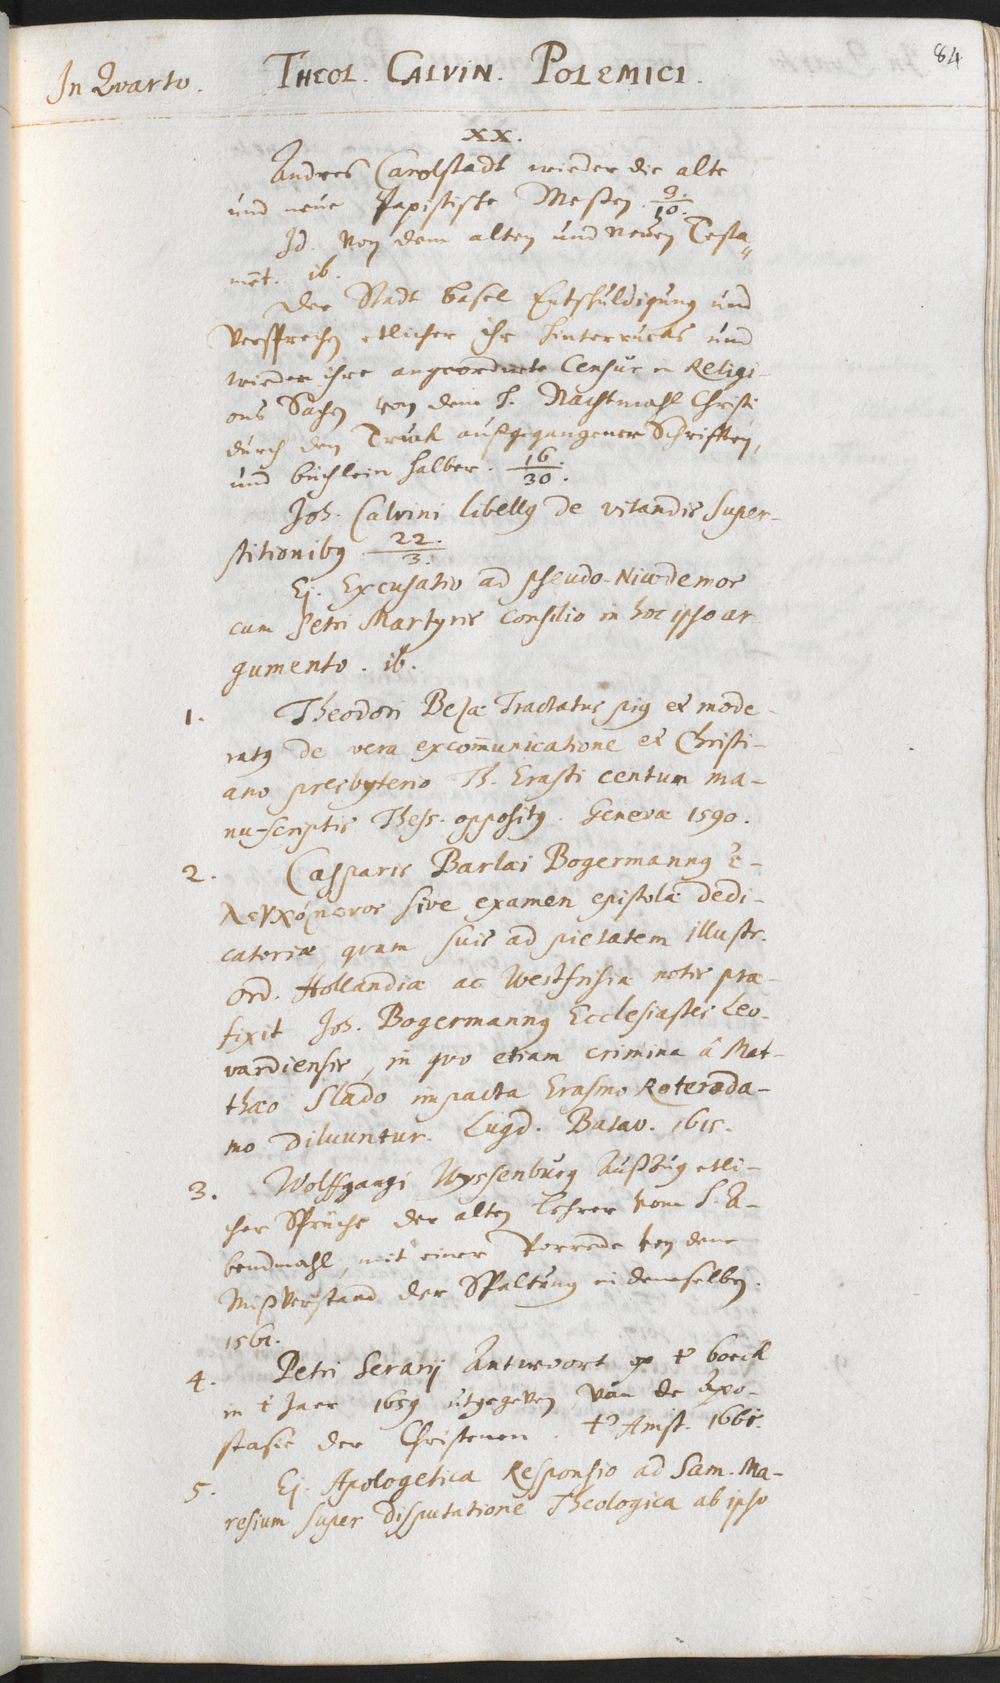 84
In Quarto. THEOL. CALVIN. POLEMICI.
XX.
Andres Carolstadt wieder die alte
und neue Papistische Messen. 9./10.
Id. Von dem alten und Neuen Testa„
mēt. ib.
Der Stadt Basel Entschuldigung und
Versprechen etlicher ihr hinterrucks und
wieder ihre angeordnete Censur in Religi-
ons Sachen von dem H. Nachtmahl Christi
durch den Truck außgegangener Schrifften,
und büchlein halber. 16./30.
Joh. Calvini libellus de vitandis super-
stitionibus 22./3.
Ej. Excusatio ad pseudo-Nicodemos
cum Petri Martyris Consilio in hoc ipso ar-
gumento. ib.
1. Theodori Bezæ Tractatus pius et mode-
ratus de vera excom̄unicatione et Christi-
ano presbyterio Th. Erasti centum ma-
nu-scriptis Thess. oppositus. Genevæ 1590.
2. Casparis Barlæi Bogermannus ἐ-
λεγχόμενος sive examen epistolæ dedi-
catoriæ quam suis ad pietatem illustr.
Ord. Hollandiæ ac Westfrisiæ notis præ-
fixit Joh. Bogermannus Ecclesiastes Leo-
vardiensis, in quo etiam crimina â Mat-
thæo Slado impacta Erasmo Roteroda-
mo diluuntur. Lugd. Batav. 1615.
3. Wolffgangi Wyssenburg Außzug etli-
cher Sprüche der alten Lehrer vom H. A-
bendmahl, mit einer Vorrede von dem
Mißverstand der Spaltung in demselben.
1561.
4. Petri Serarij Antwoort op t' boeck
in t Jaer 1659 utgegeven van de Apo-
stasie der Christenen. t' Amst. 1661.
5. Ej. Apologetica Responsio ad Sam. Ma-
resium super Disputatione Theologica ab ipso